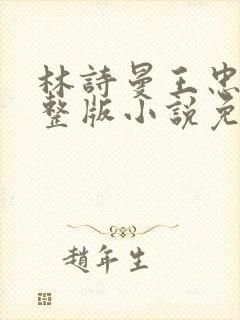 林詩曼王忠
整版小說免
趙年生